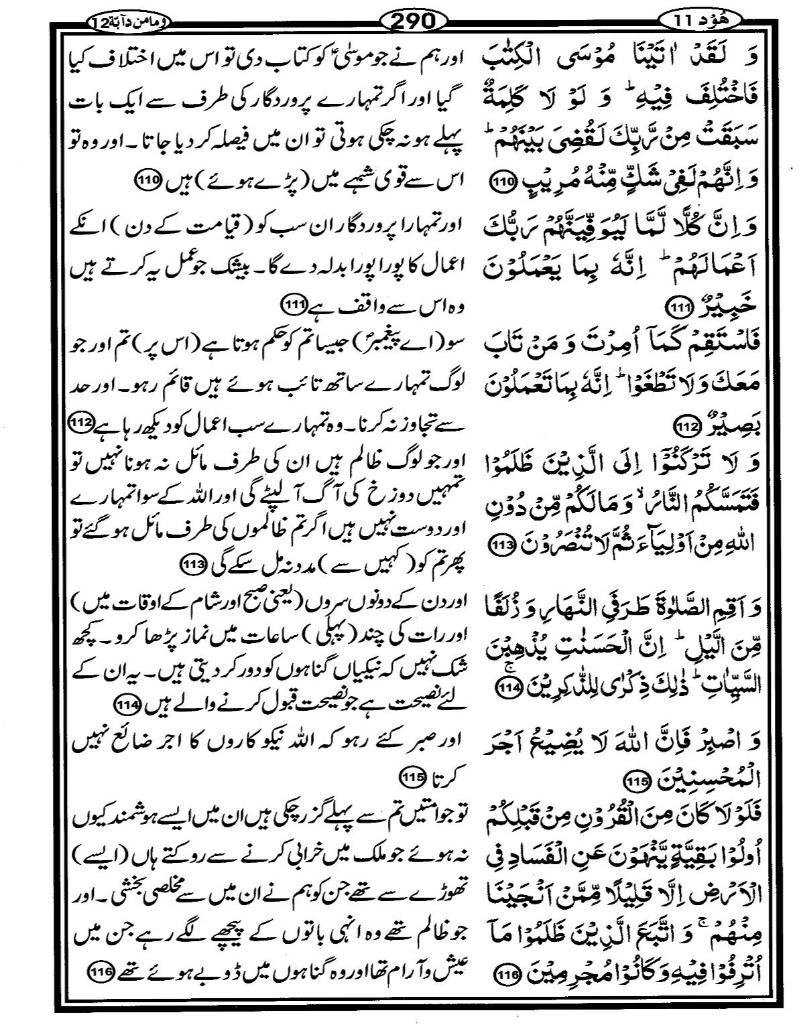 هُوْد 11
290
وَمَا مِن دَآبَّة 12
وَ لَقَدْ اٰتَيْنَا مُوْسَى الْكِتٰبَ
فَاخْتُلِفَ فِيْهِ ؕ وَ لَوْ لَا كَلِمَةٌ
سَبَقَتْ مِنْ رَّبِّكَ لَقُضِىَ بَيْنَهُمْ ؕ
وَ اِنَّهُمْ لَفِىْ شَكٍّ مِّنْهُ مُرِيْبٍ 110
وَ اِنَّ كُلًّا لَّمَّا لَيُوَفِّيَنَّهُمْ رَبُّكَ
اَعْمَالَهُمْ ؕ اِنَّهٗ بِمَا يَعْمَلُوْنَ
خَبِيْرٌ 111
فَاسْتَقِمْ كَمَاۤ اُمِرْتَ وَ مَنْ تَابَ
مَعَكَ وَ لَا تَطْغَوْا ؕ اِنَّهٗ بِمَا تَعْمَلُوْنَ
بَصِيْرٌ 112
وَ لَا تَرْكَنُوْۤا اِلَى الَّذِيْنَ ظَلَمُوْا
فَتَمَسَّكُمُ النَّارُ ۙ وَ مَا لَكُمْ مِّنْ دُوْنِ
اللّٰهِ مِنْ اَوْلِيَآءَ ثُمَّ لَا تُنْصَرُوْنَ 113
وَ اَقِمِ الصَّلٰوةَ طَرَفَىِ النَّهَارِ وَ زُلَفًا
مِّنَ الَّيْلِ ؕ اِنَّ الْحَسَنٰتِ يُذْهِبْنَ
السَّيِّاٰتِ ؕ ذٰلِكَ ذِكْرٰى لِلذّٰكِرِيْنَ ۚ 114
وَ اصْبِرْ فَاِنَّ اللّٰهَ لَا يُضِيْعُ اَجْرَ
الْمُحْسِنِيْنَ 115
فَلَوْ لَا كَانَ مِنَ الْقُرُوْنِ مِنْ قَبْلِكُمْ
اُولُوْا بَقِيَّةٍ يَّنْهَوْنَ عَنِ الْفَسَادِ فِى
الْاَرْضِ اِلَّا قَلِيْلًا مِّمَّنْ اَنْجَيْنَا
مِنْهُمْ ۚ وَ اتَّبَعَ الَّذِيْنَ ظَلَمُوْا مَاۤ
اُتْرِفُوْا فِيْهِ وَ كَانُوْا مُجْرِمِيْنَ 116
اور ہم نے جو موسٰیؑ کو کتاب دی تو اس میں اختلاف کیا
گیا اور اگر تمہارے پروردگار کی طرف سے ایک بات
پہلے ہو نہ چکی ہوتی تو ان میں فیصلہ کر دیا جاتا۔ اور وہ تو
اس سے قوی شبہے میں (پڑے ہوئے) ہیں 110
اور تمہارا پروردگار ان سب کو (قیامت کے دن) انکے
اعمال کا پورا پورا بدلہ دے گا۔ بیشک جو عمل یہ کرتے ہیں
وہ اس سے واقف ہے 111
سو (اے پیغمبرؐ) جیسا تم کو حکم ہوتا ہے (اس پر) تم اور جو
لوگ تمہارے ساتھ تائب ہوئے ہیں قائم رہو۔ اور حد
سے تجاوز نہ کرنا۔ وہ تمہارے سب اعمال کو دیکھ رہا ہے 112
اور جو لوگ ظالم ہیں ان کی طرف مائل نہ ہونا نہیں تو
تمہیں دوزخ کی آگ آ لپٹے گی اور اللہ کے سوا تمہارے
اور دوست نہیں ہیں اگر تم ظالموں کی طرف مائل ہو گئے تو
پھر تم کو (کہیں سے) مدد نہ مل سکے گی 113
اور دن کے دونوں سروں (یعنی صبح اور شام کے اوقات میں)
اور رات کی چند (پہلی) ساعات میں نماز پڑھا کرو۔ کچھ
شک نہیں کہ نیکیاں گناہوں کو دور کر دیتی ہیں۔ یہ ان کے
لئے نصیحت ہے جو نصیحت قبول کرنے والے ہیں 114
اور صبر کئے رہو کہ اللہ نیکوکاروں کا اجر ضائع نہیں
کرتا 115
تو جو امتیں تم سے پہلے گزر چکی ہیں ان میں ایسے ہوشمند کیوں
نہ ہوئے جو ملک میں خرابی کرنے سے روکتے ہاں (ایسے)
تھوڑے سے تھے جن کو ہم نے ان میں سے مخلصی بخشی۔ اور
جو ظالم تھے وہ انہی باتوں کے پیچھے لگے رہے جن میں
عیش و آرام تھا اور وہ گناہوں میں ڈوبے ہوئے تھے 116